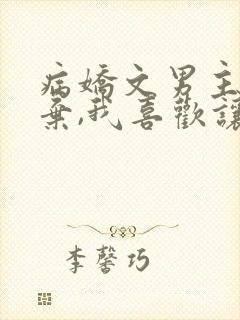 病嬌文男主
棄,我喜歡讓
李馨巧